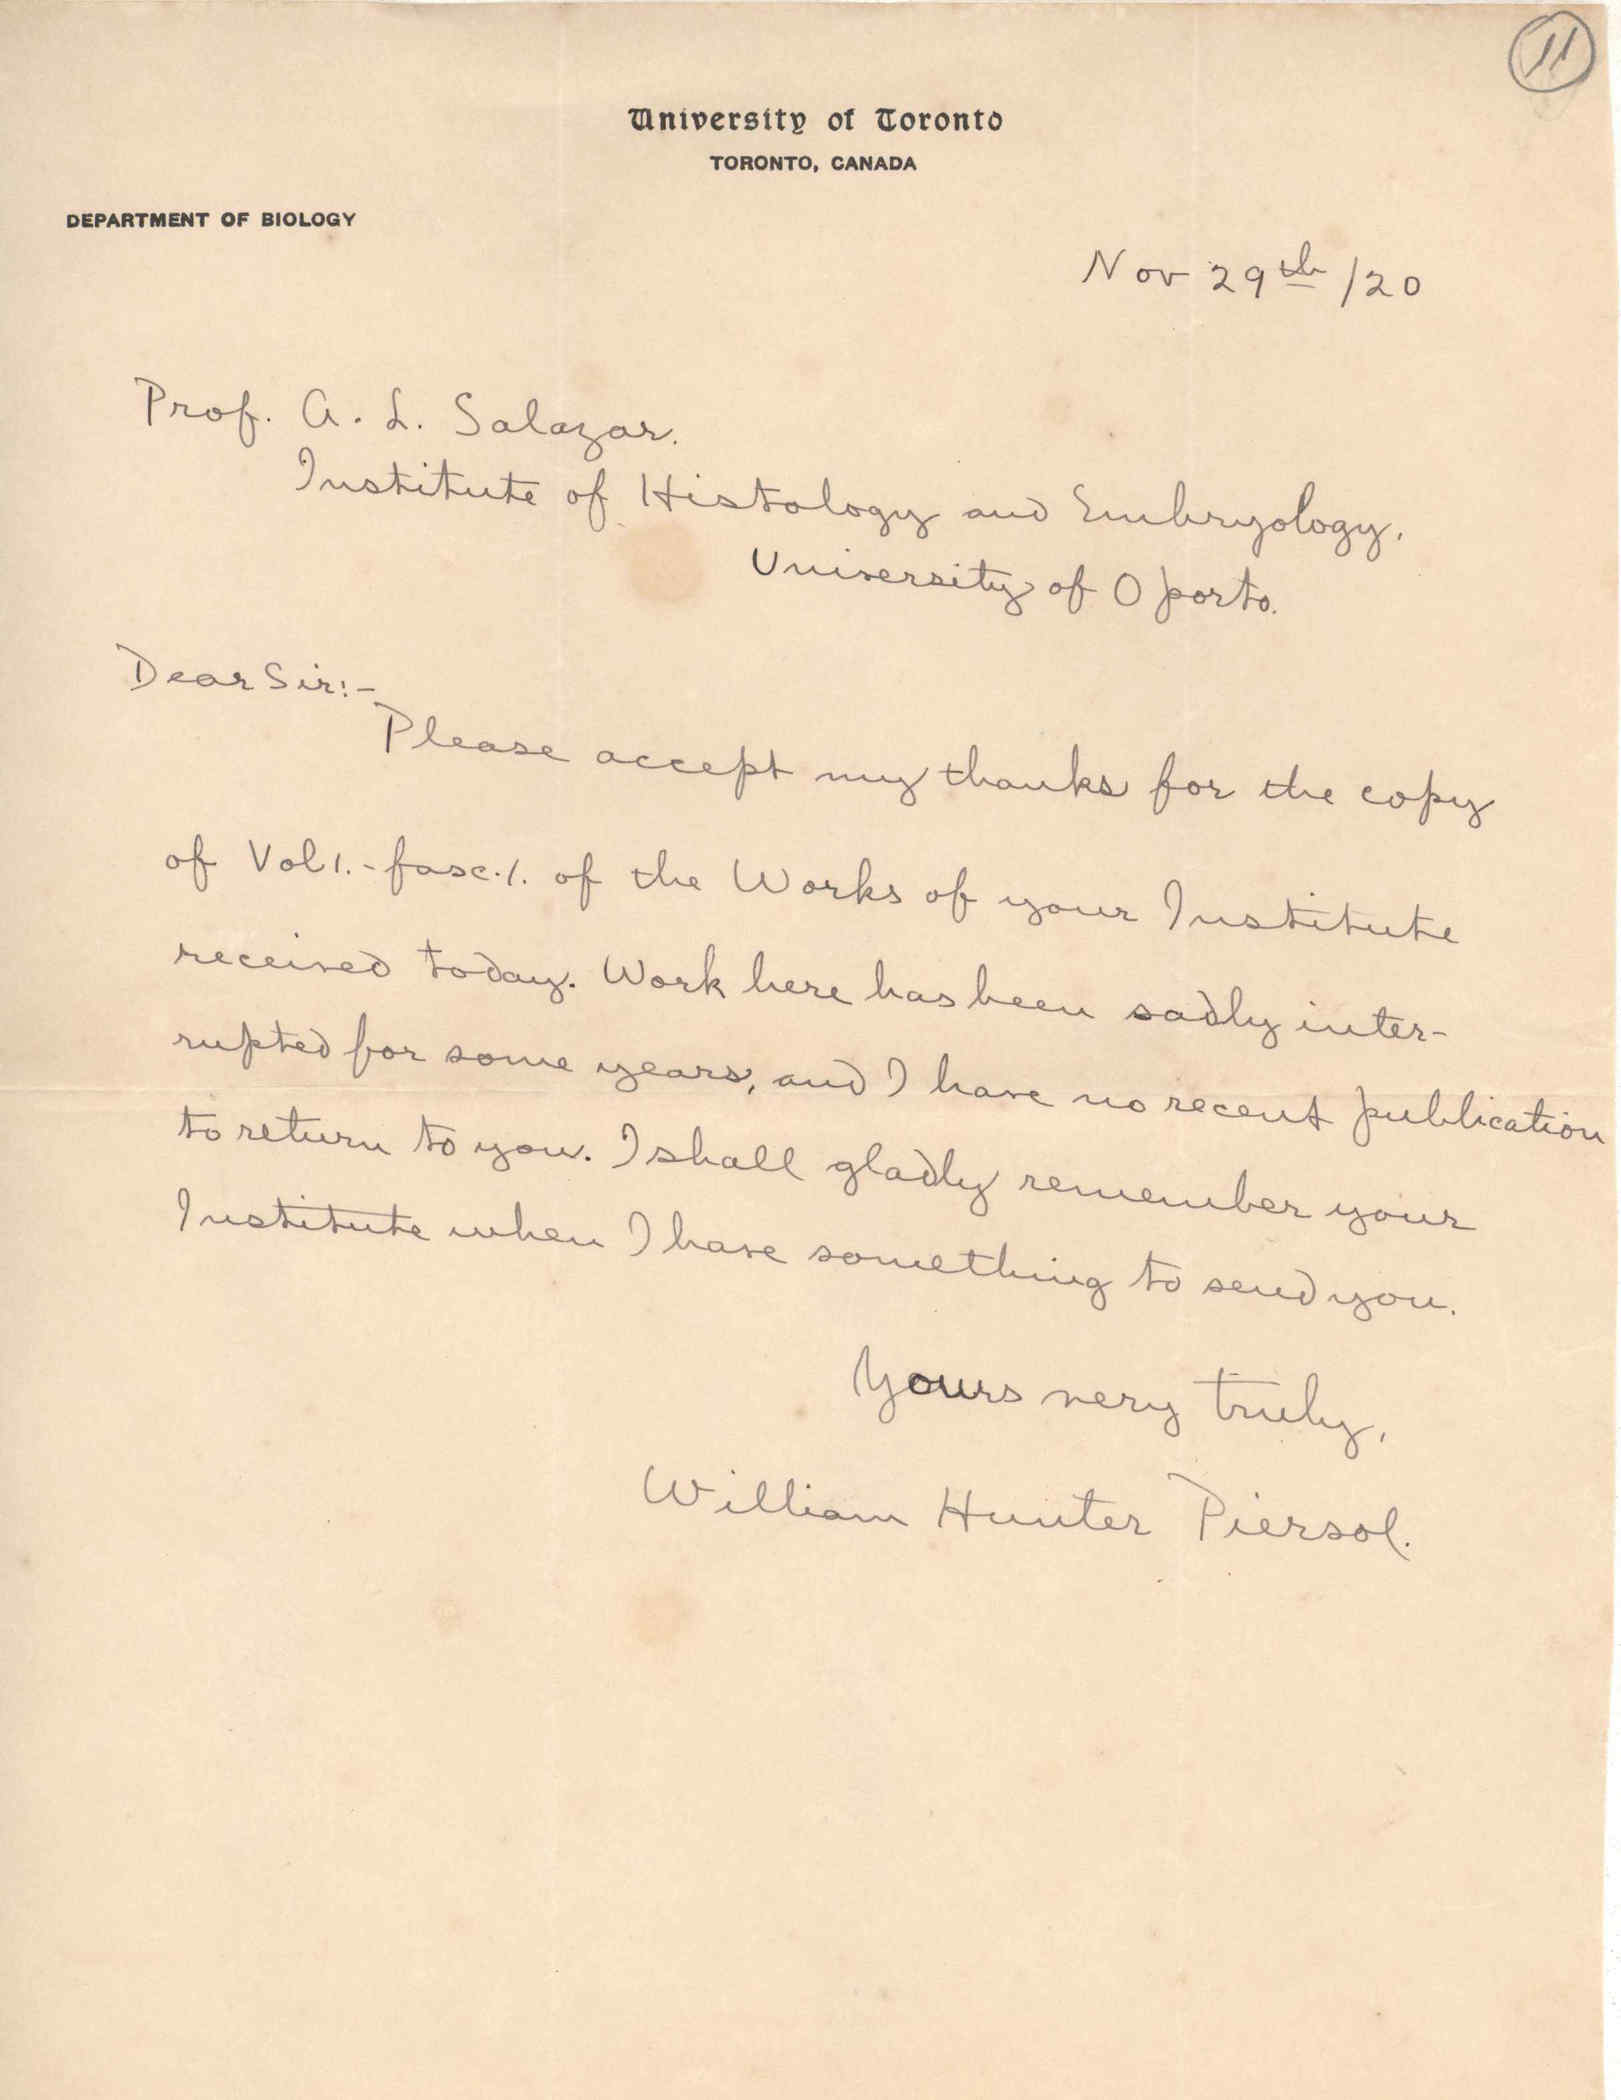 11
University of Toronto
TORONTO, CANADA
DEPARTMENT OF BIOLOGY
Nov 29th /20
Prof. A. L. Salazar.
Institute of Histology and Embryology,
University of Oporto.
Dear Sir:-
Please accept my thanks for the copy
of Vol 1. - fasc. 1. of the Works of your Institute
received today. Work here has been sadly inter-
rupted for some years, and I have no recent publication
to return to you. I shall gladly remember your
Institute when I have something to send you.
Yours very truly,
William Hunter Piersol.